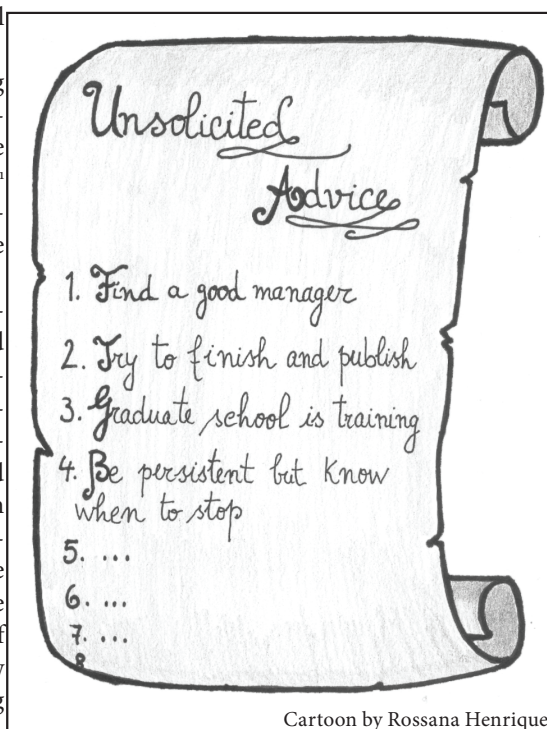 Unsolicited
Advice
1. Find a good manager
2. Try to finish and publish
3. Graduate school is training
4. Be persistent but know
when to stop
5. ...
6. ...
7. ...
8
Cartoon by Rossana Henrique